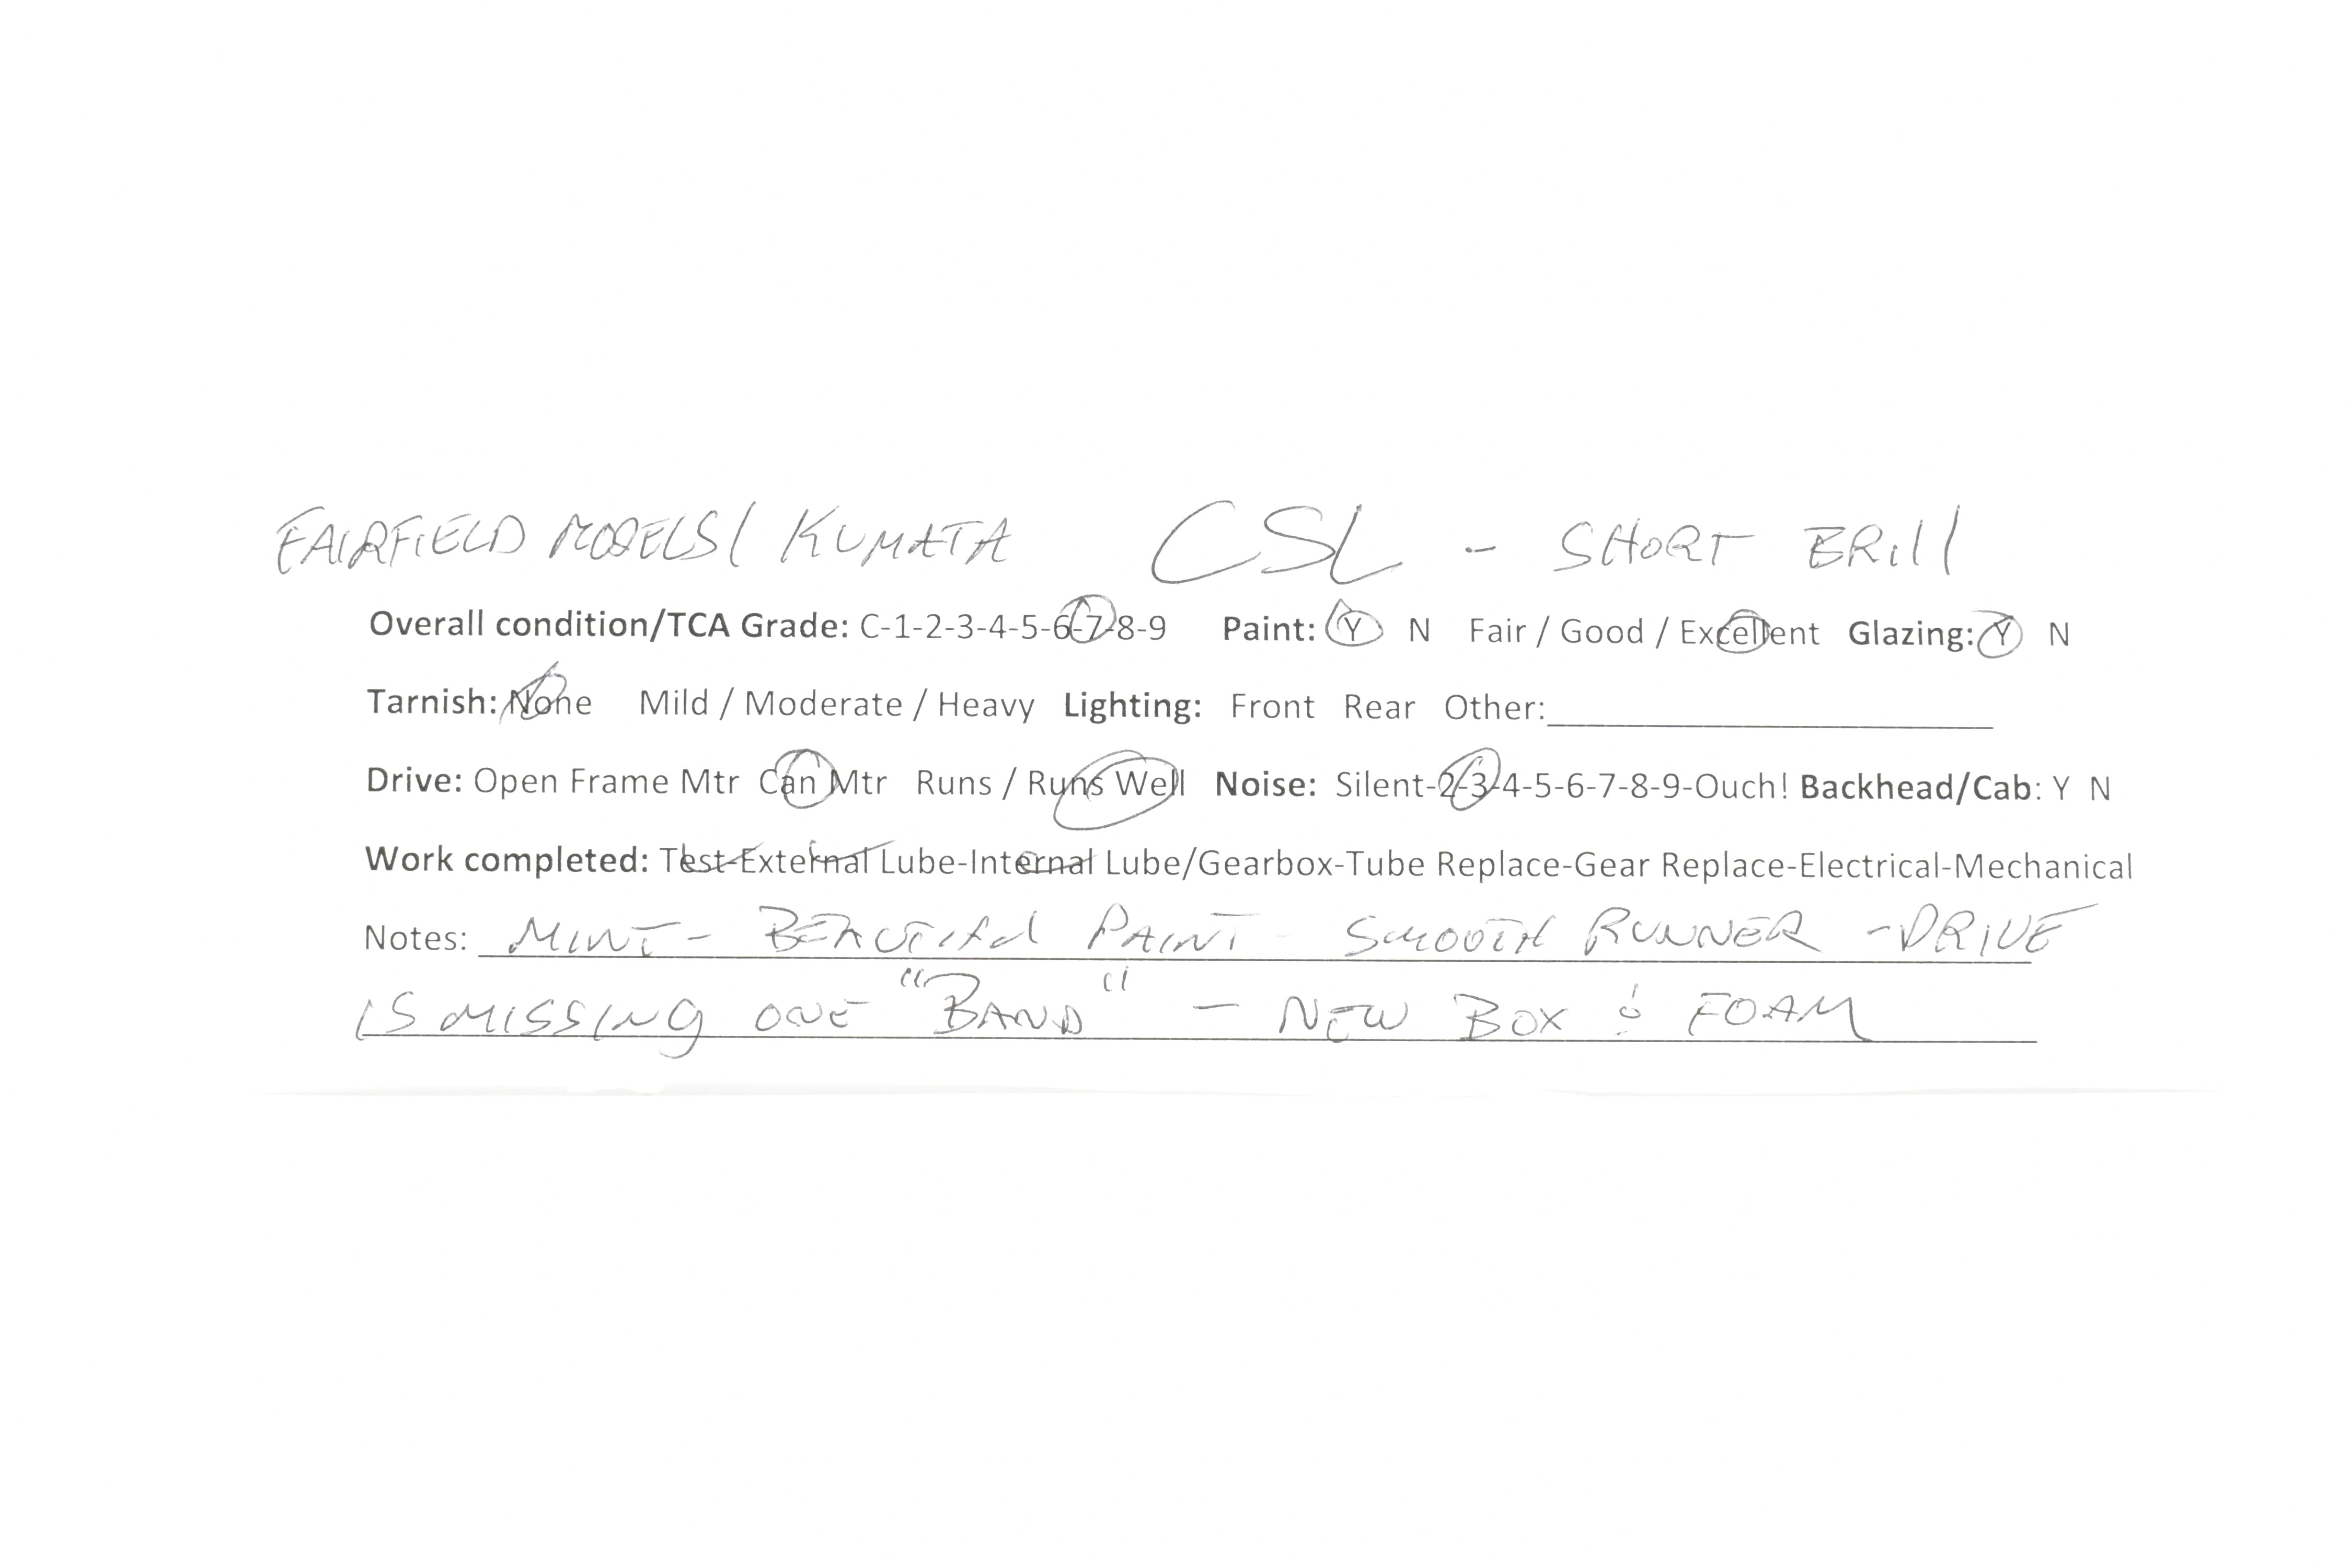 FAIRFIELD MODELS/ KUMATA CSL - SHORT BRILL
Overall condition/TCA Grade: C-1-2-3-4-5-6-7-8-9 Paint: Y N Fair / Good / Excellent Glazing: Y N
Tarnish: None Mild / Moderate / Heavy Lighting: Front Rear Other:
Drive: Open Frame Mtr Can Mtr Runs / Runs Well Noise: Silent-2-3-4-5-6-7-8-9-Ouch! Backhead/Cab: Y N
Work completed: Test-External Lube-Internal Lube/Gearbox-Tube Replace-Gear Replace-Electrical-Mechanical
Notes: MINT- BEAUTIFUL PAINT - SMOOTH RUNNER - DRIVE
IS MISSING ONE "BAND" - NEW BOX & FOAM